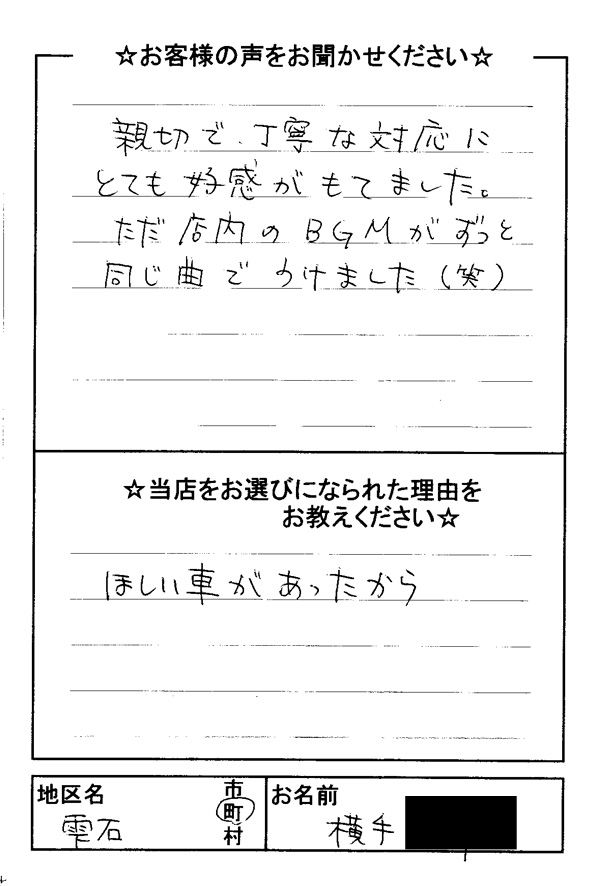 ☆お客様の声をお聞かせください☆
親切で、丁寧な対応に
とても好感がもてました。
ただ店内のBGMがずっと
同じ曲でうけました（笑）
☆当店をお選びになられた理由を
お教えください☆
ほしい車があったから
地区名
雫石
市
町
村
お名前
横手